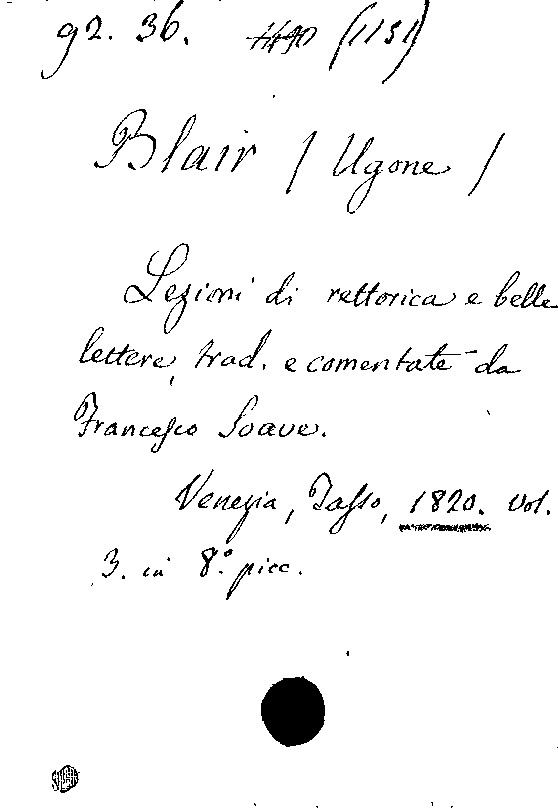 92. 36. (1151)
Blair / Ugone /
Lezioni di rettorica e belle
lettere, trad. e comentate da
Francesco Soave.
Venezia, Tasso, 1820. Vol.
3. in 8.° picc.